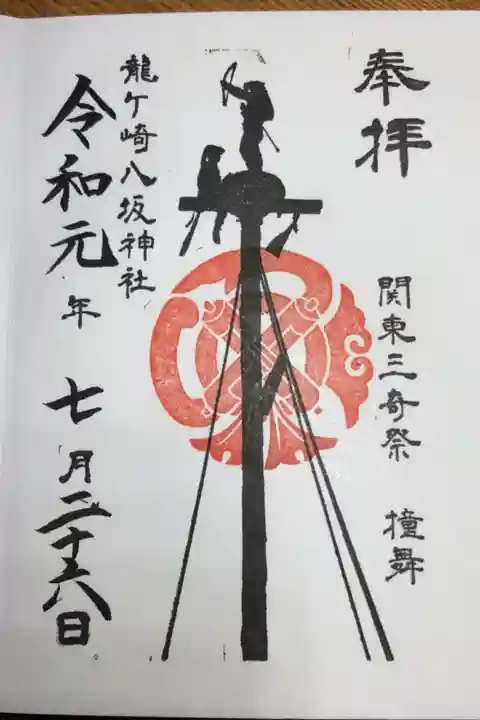 奉拝
関東三奇祭 撞舞
龍ケ崎八坂神社
令和元年七月二十六日